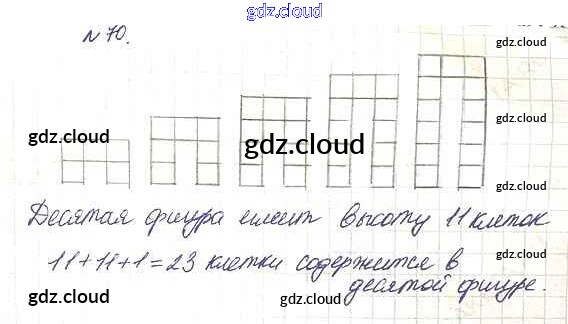 gdz.cloud
N 70.
gdz.cloud
gdz.cloud
gdz.cloud
gdz.cloud
gdz.cloud
Десятая фигура имеет высоту 11 клеток
11+11+1=23 клетки содержится в
десятой фигуре.
gdz.cloud
gdz.cloud
gdz.cloud
gdz.cloud